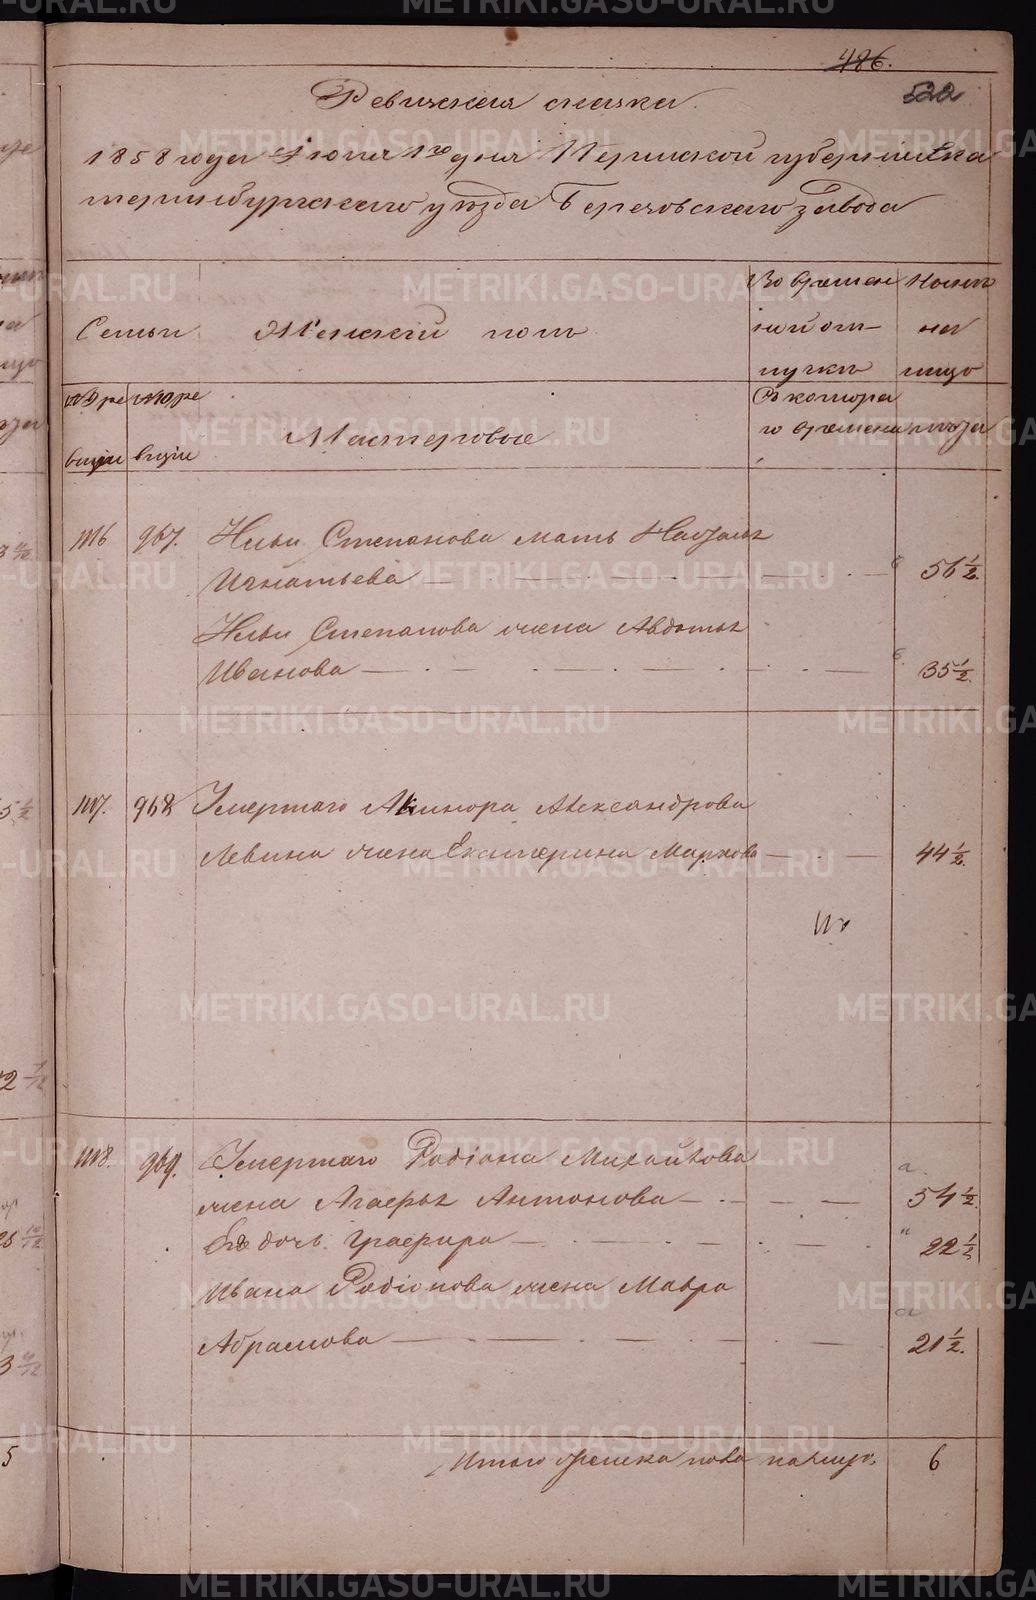 486.
522
Ревизская сказка
1858 года Июня 1го дня Пермской губернии Ека
теринбургскаго уѣзда Березовскаго завода
Семьи
Женский полъ
Во времен
ной от-
лучкѣ
Нынѣ
на
лицо
по ре
визии
ревизии
Мастеровые
Съ котора
го времени
года
967. Ильи Степанова мать Наталья
Игнатьева 56 ½
Ильи Степанова жена Авдотья
Иванова 35 ½
968 Умершаго Александрова
Левина жена Екатерина Маркова 44 ½
969. Умершаго Родіона Михайлова
жена Агафья Антонова 54 ½
Его дочь Глафира 22 ½
Ивана Родіонова жена Мавра
Абрамова 21 ½
Итого женска пола на лицо 6
METRIKI.GASO-URAL.RU